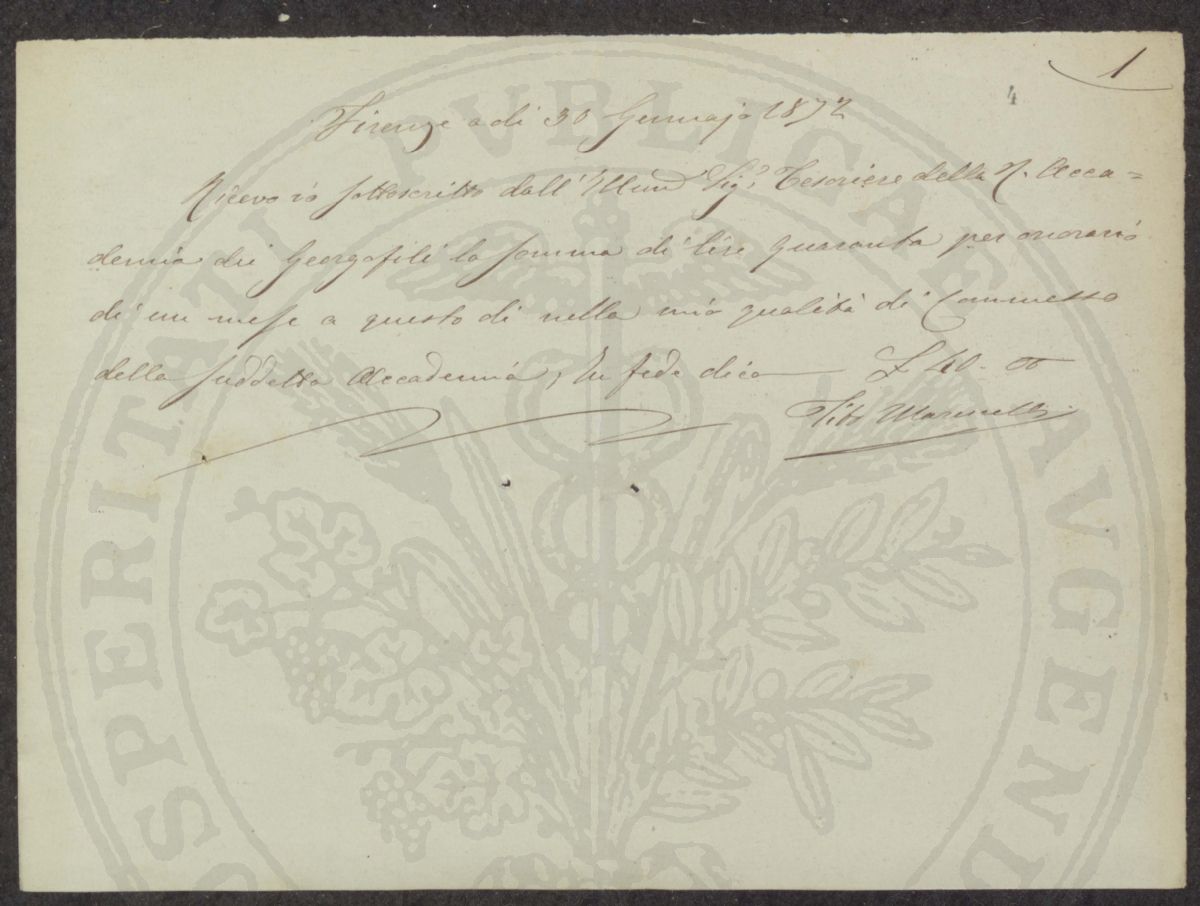 1
4
Firenze a di 30 Gennajo 1872
Ricevo io sottoscritto dall' Sig.r Tesoriere della R. Acca=
demia dei Georgofili la somma di lire quaranta per onorario
di un mese a questo di nella mia qualità di Commesso
della suddetta Accademia, In fede dico — £ 40. 00
Tito
PROSPERITATI PVBLICAE AVGENDAE